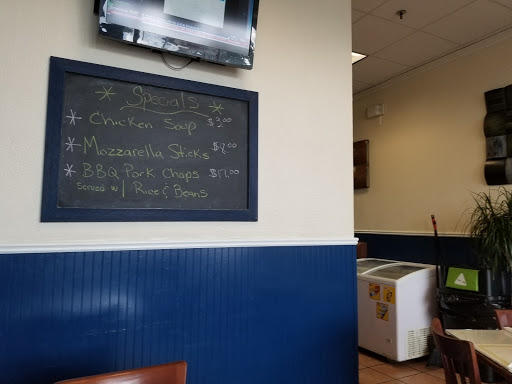 * Specials *
* Chicken Soup $3.00
* Mozzarella Sticks $8.00
* BBQ Pork Chops $17.00
Served w/ Rice & Beans